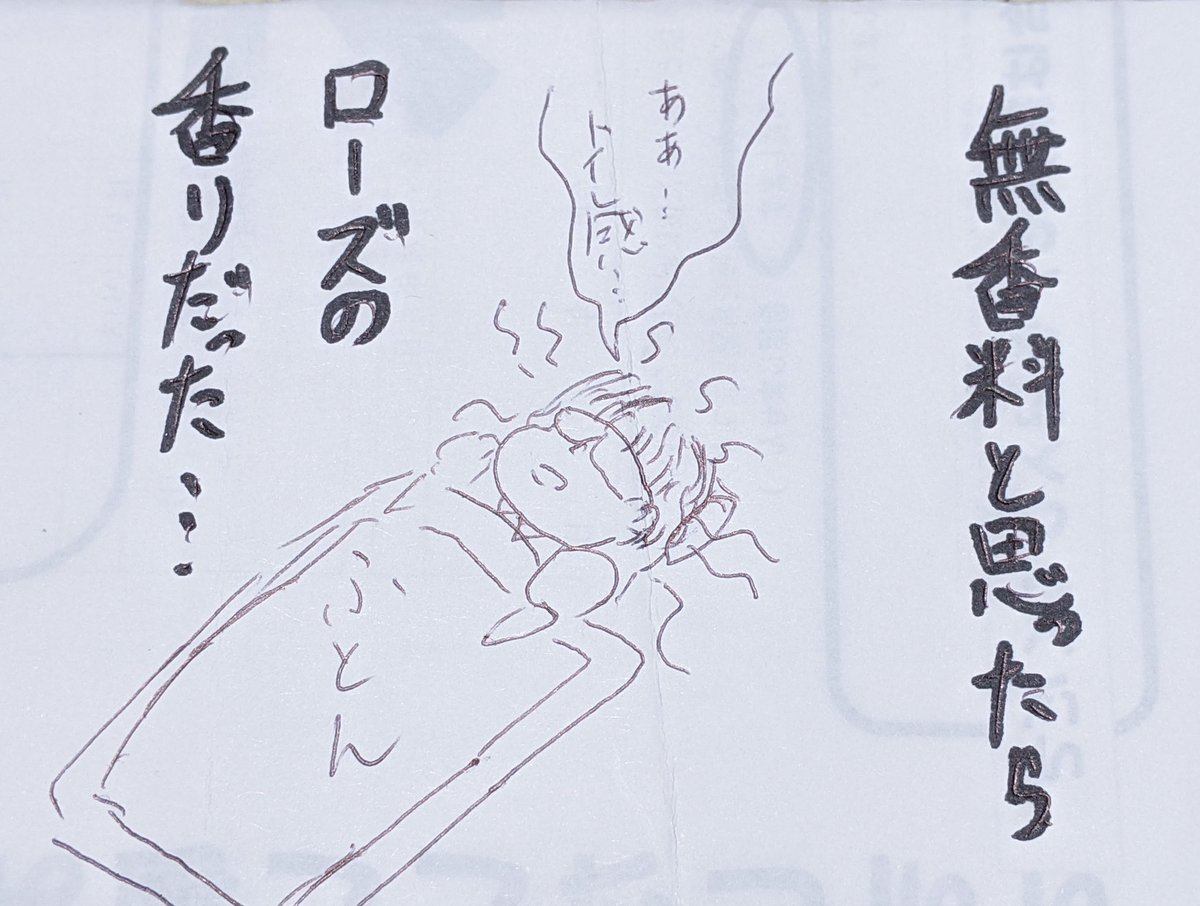 無香料と思ったら
ああ…
トイレ感…
ローズの
香りだった…
ふとん